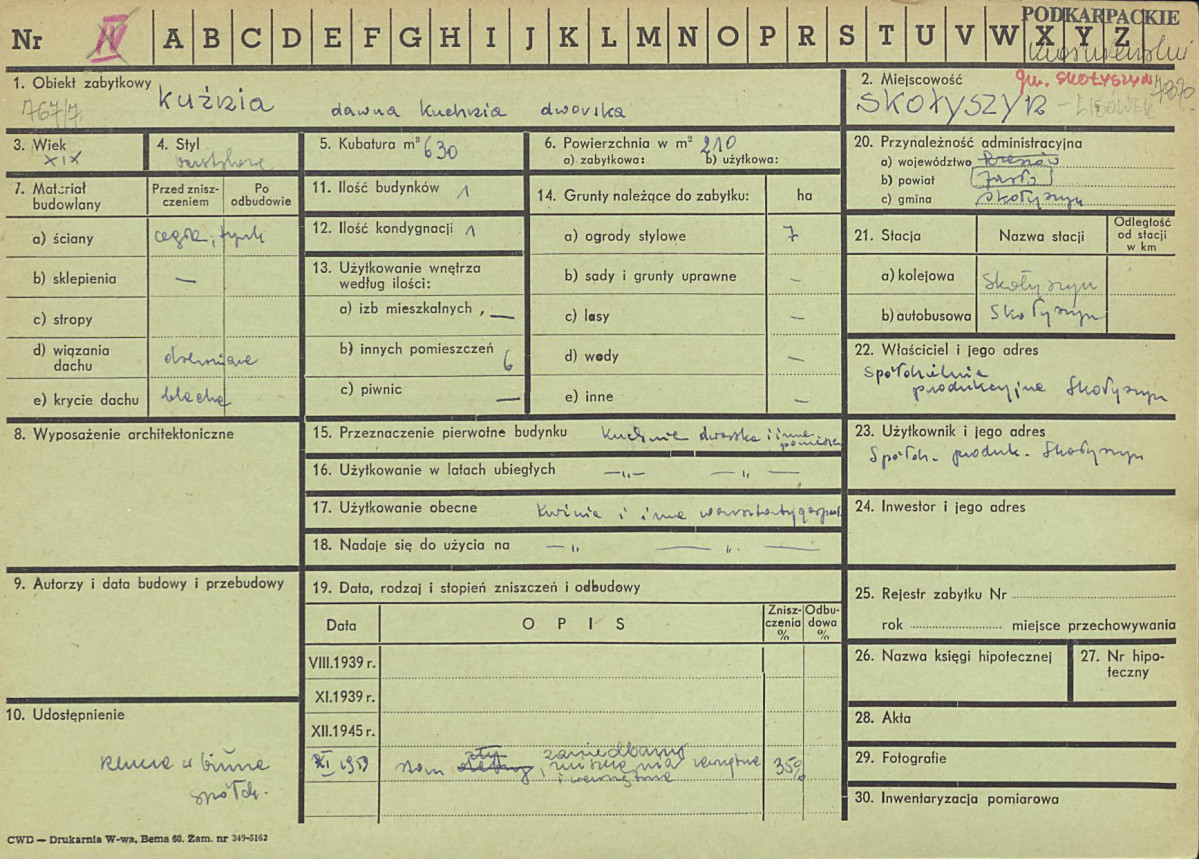 Nr IV A B C D E F G H I J K L M N O P R S T U V W X Y Z
PODKARPACKIE
1. Obiekt zabytkowy
767/7
Kuźnia dawna Kuchnia dworska
2. Miejscowość
gm. SKOŁYSZYN
SKOŁYSZYN – LISÓWEK
3. Wiek
XIX
4. Styl
5. Kubatura m³ 630
6. Powierzchnia w m² 210
a) zabytkowa: b) użytkowa:
7. Materiał budowlany
Przed zniszczeniem
Po odbudowie
a) ściany cegła, tynk
b) sklepienia —
c) stropy
d) wiązania dachu drewniane
e) krycie dachu blacha
8. Wyposażenie architektoniczne
9. Autorzy i data budowy i przebudowy
10. Udostępnienie
klucze w biurze
spółdz.
11. Ilość budynków 1
12. Ilość kondygnacji 1
13. Użytkowanie wnętrza według ilości:
a) izb mieszkalnych, —
b) innych pomieszczeń 6
c) piwnic —
14. Grunty należące do zabytku: ha
a) ogrody stylowe 7
b) sady i grunty uprawne –
c) lasy –
d) wody –
e) inne –
15. Przeznaczenie pierwotne budynku Kuchnia dworska i inne pomieszcz.
16. Użytkowanie w latach ubiegłych —„— —„—
17. Użytkowanie obecne Kuźnia i inne warsztaty gospod.
18. Nadaje się do użycia na —„ — „ —
19. Data, rodzaj i stopień zniszczeń i odbudowy
Data
OPIS
Zniszczenia %
Odbudowa %
VIII.1939 r.
XI.1939 r.
XII.1945 r.
XI 1959 stan zły, zaniedbany, zniszczenia zewnętrzne i wewnętrzne 35%
20. Przynależność administracyjna
a) województwo Rzeszów
b) powiat Jasło
c) gmina Skołyszyn
21. Stacja
Nazwa stacji
Odległość od stacji w km
a) kolejowa Skołyszyn
b) autobusowa Skołyszyn
22. Właściciel i jego adres
Spółdzielnia
produkcyjna Skołyszyn
23. Użytkownik i jego adres
Spółdz. produk. Skołyszyn
24. Inwestor i jego adres
25. Rejestr zabytku Nr
rok miejsce przechowywania
26. Nazwa księgi hipotecznej
27. Nr hipoteczny
28. Akta
29. Fotografie
30. Inwentaryzacja pomiarowa
CWD — Drukarnia W-wa, Bema 60. Zam. nr 349-5162